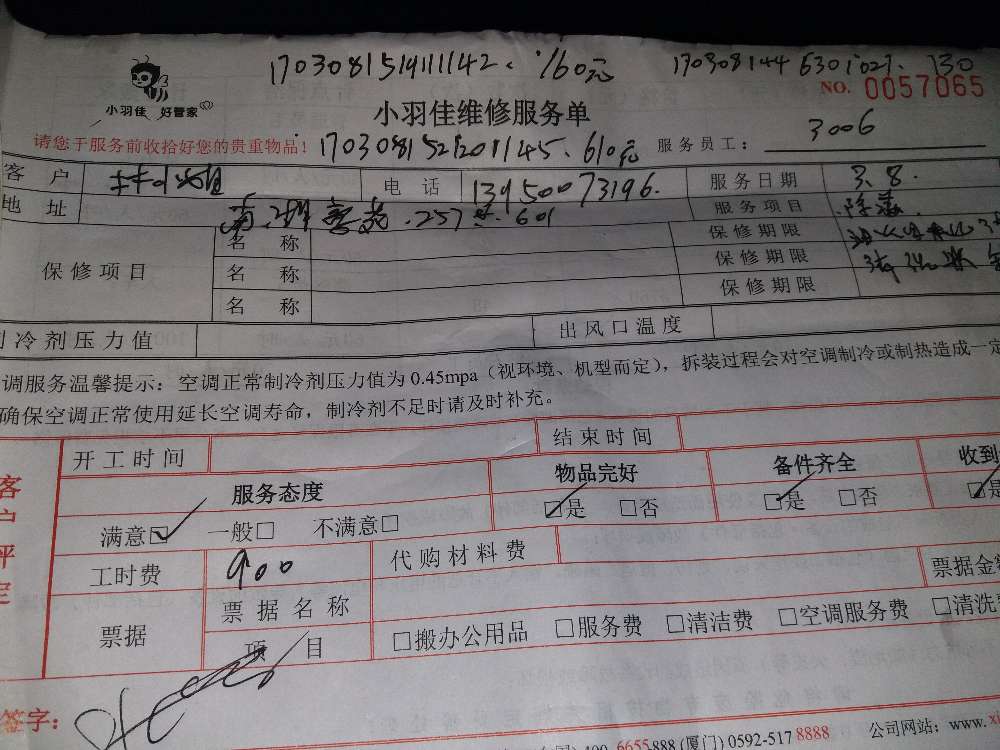 17030815191111142. 160元 1703081446301027. 730
小羽佳 好管家
小羽佳维修服务单
NO. 0057065
请您于服务前收拾好您的贵重物品! 17030815212011145. 610元 服务员工: 3006
客 户 小姐 电 话 13950073196. 服务日期 3.8.
地 址 .257 601 服务项目
保修项目 名 称 保修期限
名 称 保修期限
名 称 保修期限
制冷剂压力值 出风口温度
调服务温馨提示:空调正常制冷剂压力值为 0.45mpa(视环境、机型而定),拆装过程会对空调制冷或制热造成一定
确保空调正常使用延长空调寿命,制冷剂不足时请及时补充。
客户评定
开工时间 结束时间
服务态度 物品完好 备件齐全 收到
满意☑ 一般□ 不满意□ ☑是 □否 ☑是 □否 ☑是
工时费 900 代购材料费
票据 票据名称 票据金额
项 目 □搬办公用品 □服务费 □清洁费 □空调服务费 □清洗费
签字:
400 6655888 (厦门) 0592-5178888 公司网站: www.